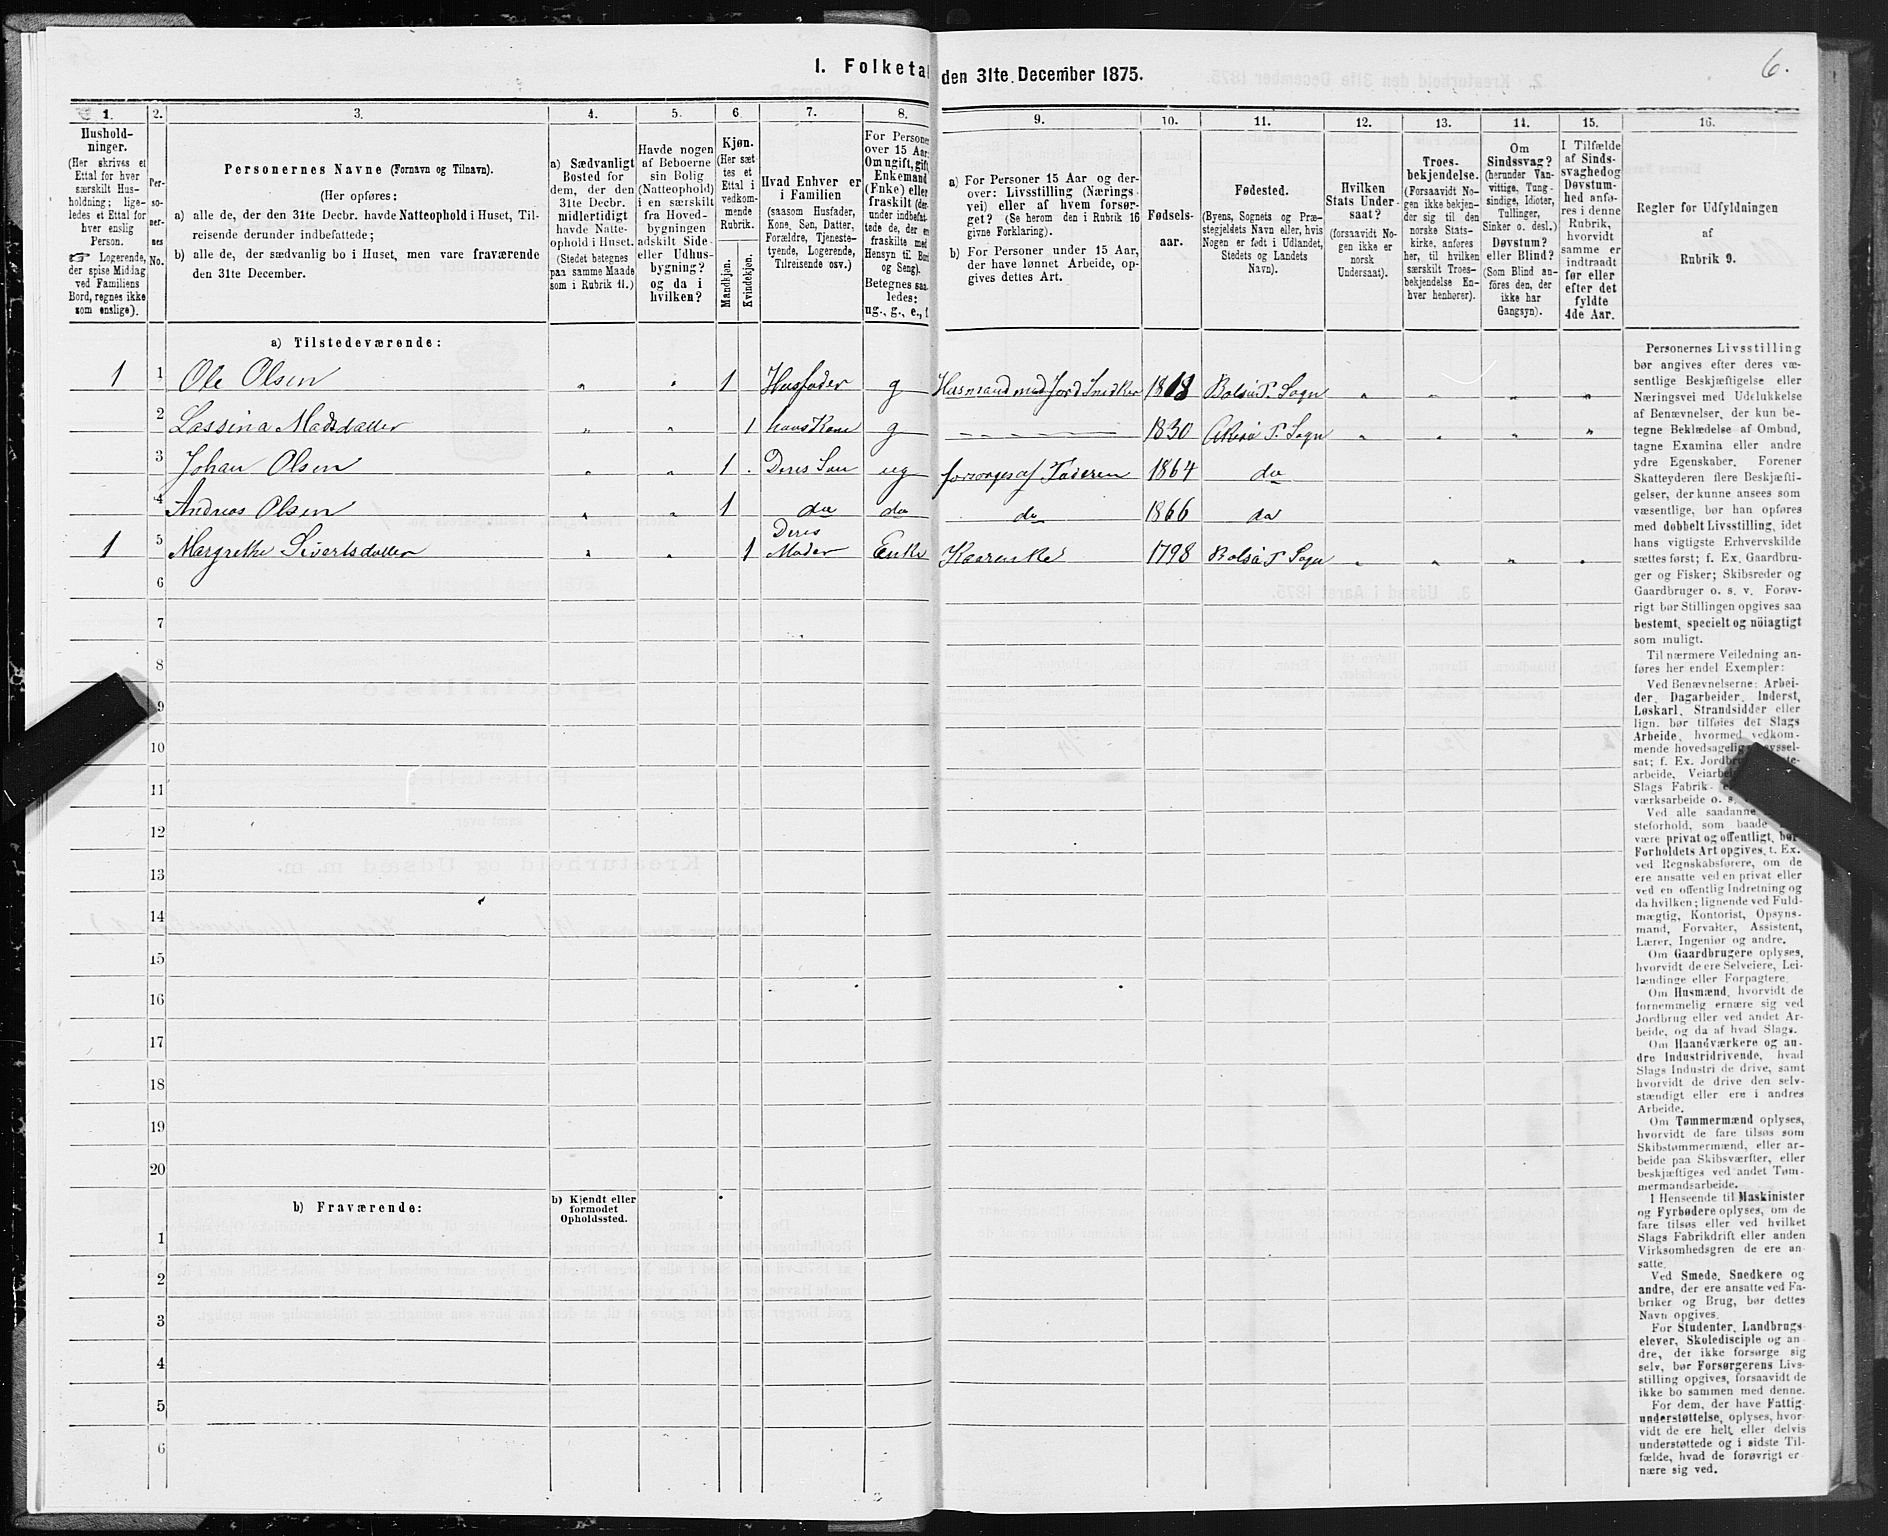 I. Folketal den 31te December 1875.
6.
1.
Hushold-
ninger.
(Her skrives et
Ettal for hver
særskilt Hus-
holdning; lige-
ledes et Ettal for
hver enslig
Person.
☞ Logerende,
der spise Middag
ved Familiens
Bord, regnes ikke
som enslige).
2.
Per-
so-
ner-
nes
No.
3.
Personernes Navne (Fornavn og Tilnavn).
(Her opføres:
a) alle de, der den 31te Decbr. havde Natteophold i Huset, Til-
reisende derunder indbefattede;
b) alle de, der sædvanlig bo i Huset, men vare fraværende
den 31te December.
4.
a) Sædvanligt
Bosted for
dem, der den
31te Decbr.
midlertidigt
havde Natte-
ophold i Huset.
(Stedet betegnes
paa samme Maade
som i Rubrik 11.)
5.
Havde nogen
af Beboerne
sin Bolig
(Natteophold)
i en særskilt
fra Hoved-
bygningen
adskilt Side-
eller Udhus-
bygning?
og da i
hvilken?
6
Kjøn.
(Her sæt-
tes et
Ettal i
vedkom-
mende
Rubrik.
Mandkjøn.
Kvindekjøn.
7.
Hvad Enhver er
i Familien
(saasom Husfader,
Kone, Søn, Datter,
Forældre, Tjeneste-
tyende, Logerende,
Tilreisende osv.)
8.
For Persone
over 15 Aar:
Om ugift, gift,
Enkemand
(Enke) eller
fraskilt (der-
under indbefat-
tede de, der er
fraskilte med
Hensyn til Bo
og Seng).
Betegnes saa-
ledes:
ug., g., e., f
9.
a) For Personer 15 Aar og der-
over: Livsstilling (Nærings-
vei) eller af hvem forsør-
get? (Se herom den i Rubrik 16
givne Forklaring).
b) For Personer under 15 Aar,
der have lønnet Arbeide, op-
gives dettes Art.
10.
Fødsels-
aar.
11.
Fødested.
(Byens, Sognets og Præ-
stegjeldets Navn eller, hvis
Nogen er født i Udlandet,
Stedets og Landets
Navn).
12.
Hvilken
Stats Under-
saat?
(forsaavidt No-
gen ikke er
norsk
Undersaat).
13.
Troes-
bekjendelse.
(Forsaavidt No-
gen ikke bekjen-
der sig til den
norske Stats-
kirke, anføres
her, til hvilken
særskilt Troes-
bekjendelse En-
hver henhører).
14.
Om
Sindssvag?
(herunder Van-
vittige, Tung-
sindige, Idioter,
Tullinger,
Sinker o. desl.)
Døvstum?
eller Blind?
(Som Blind an-
føres den, der
ikke har
Gangsyn).
15.
I Tilfælde
af Sinds-
svaghed og
Døvstum-
hed anfø-
res i denne
Rubrik,
hvorvidt
samme er
indtraadt
før eller
efter det
fyldte
4de Aar.
16.
Regler for Udfyldningen
af
Rubrik 9.
a) Tilstedeværende:
1 1 Ole Olsen " " 1 Husfader g Husmand med Jord Snedker 1818 Bolsø P. Sogn " " " "
2 Lassina Madsdatter " " 1 hans Kone g — 1830 Akerø P. Sogn " " " "
3 Johan Olsen " " 1 Deres Søn ug forsørges af Faderen 1864 do
4 Andreas Olsen " " 1 do do do 1866 do
1 5 Margrethe Sivertsdatter " " 1 Deres Moder Enke Kaarenke 1798 Bolsø P Sogn " " " "
6
7
8
9
10
11
12
13
14
15
16
17
18
19
20
b) Fraværende:
b) Kjendt eller
formodet
Opholdssted.
1
2
3
4
5
6
Personernes Livsstilling
bør angives efter deres væ-
sentlige Beskjæftigelse eller
Næringsvei med Udelukkelse
af Benævnelser, der kun be-
tegne Beklædelse af Ombud,
tagne Examina eller andre
ydre Egenskaber. Forener
Skatteyderen flere Beskjæfti-
gelser, der kunne ansees som
væsentlige, bør han opføres
med dobbelt Livsstilling, idet
hans vigtigste Erhvervskilde
sættes først; f. Ex. Gaardbru-
ger og Fisker; Skibsreder og
Gaardbruger o. s. v. Forøv-
rigt bør Stillingen opgives saa
bestemt, specielt og nöiagtigt
som muligt.
Til nærmere Veiledning an-
føres her endel Exempler:
Ved Benævnelserne: Arbei-
der, Dagarbeider, Inderst,
Løskarl, Strandsidder eller
lign. bør tilføies det Slags
Arbeide, hvormed vedkom-
mende hovedsagelig syssel-
sat; f. Ex.
arbeide,
Slags Fabrik-
værksarbeide o. s.
Ved alle saadanne
steforhold, som baade
være privat og offentligt, bør
Forholdets Art opgives, t. Ex.
ved Regnskabsførere, om de
ere ansatte ved en privat eller
ved en offentlig Indretning og
da hvilken; lignende ved Fuld-
mægtig, Kontorist, Opsyns-
mand, Forvalter, Assistent,
Lærer, Ingeniør og andre.
Om Gaardbrugere oplyses,
hvorvidt de ere Selveiere, Lei-
lændinge eller Forpagtere.
Om Husmænd, hvorvidt de
fornemmelig ernære sig ved
Jordbrug eller ved andet Ar-
beide, og da af hvad Slags.
Om Haandværkere og an-
dre Industridrivende, hvad
Slags Industri de drive, samt
hvorvidt de drive den selv-
stændigt eller ere i andres
Arbeide.
Om Tømmermænd oplyses,
hvorvidt de fare tilsøs som
Skibstømmermænd, eller ar-
beide paa Skibsværfter, eller
beskjæftiges ved andet Tøm-
mermandsarbeide.
I Henseende til Maskinister
og Fyrbødere oplyses, om de
fare tilsøs eller ved hvilket
Slags Fabrikdrift eller anden
Virksomhedsgren de ere an-
satte.
Ved Smede, Snedkere og
andre, der ere ansatte ved Fa-
briker og Brug, bør dettes
Navn opgives.
For Studenter, Landbrugs-
elever, Skoledisciple og an-
dre, der ikke forsørge sig
selv, bør Forsørgerens Livs-
stilling opgives, forsaavidt de
ikke bo sammen med denne.
For dem, der have Fattig-
understøttelse, oplyses, hvor-
vidt de ere helt eller delvis
understøttede og i sidste Til-
fælde, hvad de forøvrigt er-
nære sig ved.